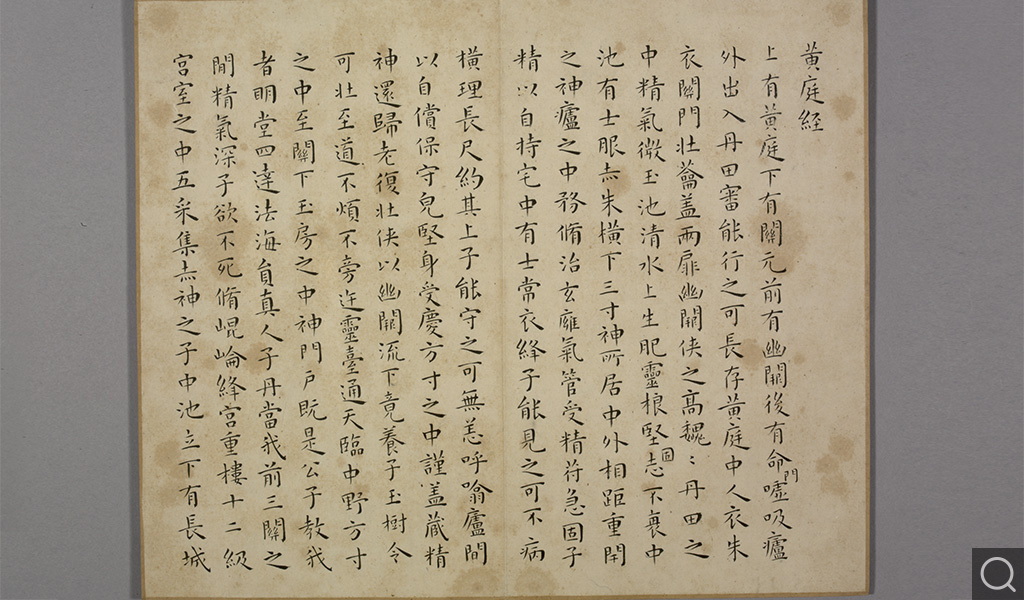 黃庭經
上有黃庭下有關元前有幽關後有命門噓吸廬
外出入丹田審能行之可長存黃庭中人衣朱
衣關門壯蘥盖兩扉幽關俠之高魏〻丹田之
中精氣微玉池清水上生肥靈根堅固志不衰中
池有士服赤朱橫下三寸神所居中外相距重閉
之神廬之中務脩治玄廱氣管受精苻急固子
精以自持宅中有士常衣絳子能見之可不病
橫理長尺約其上子能守之可無恙呼噏廬間
以自償保守皃堅身受慶方寸之中謹盖藏精
神還歸老復壯俠以幽關流下竟養子玉樹令
可壯至道不煩不旁迕靈臺通天臨中野方寸
之中至關下玉房之中神門戶既是公子教我
者明堂四達法海員真人子丹當我前三關之
間精氣深子欲不死脩崐崘絳宮重樓十二級
宮室之中五采集赤神之子中池立下有長城